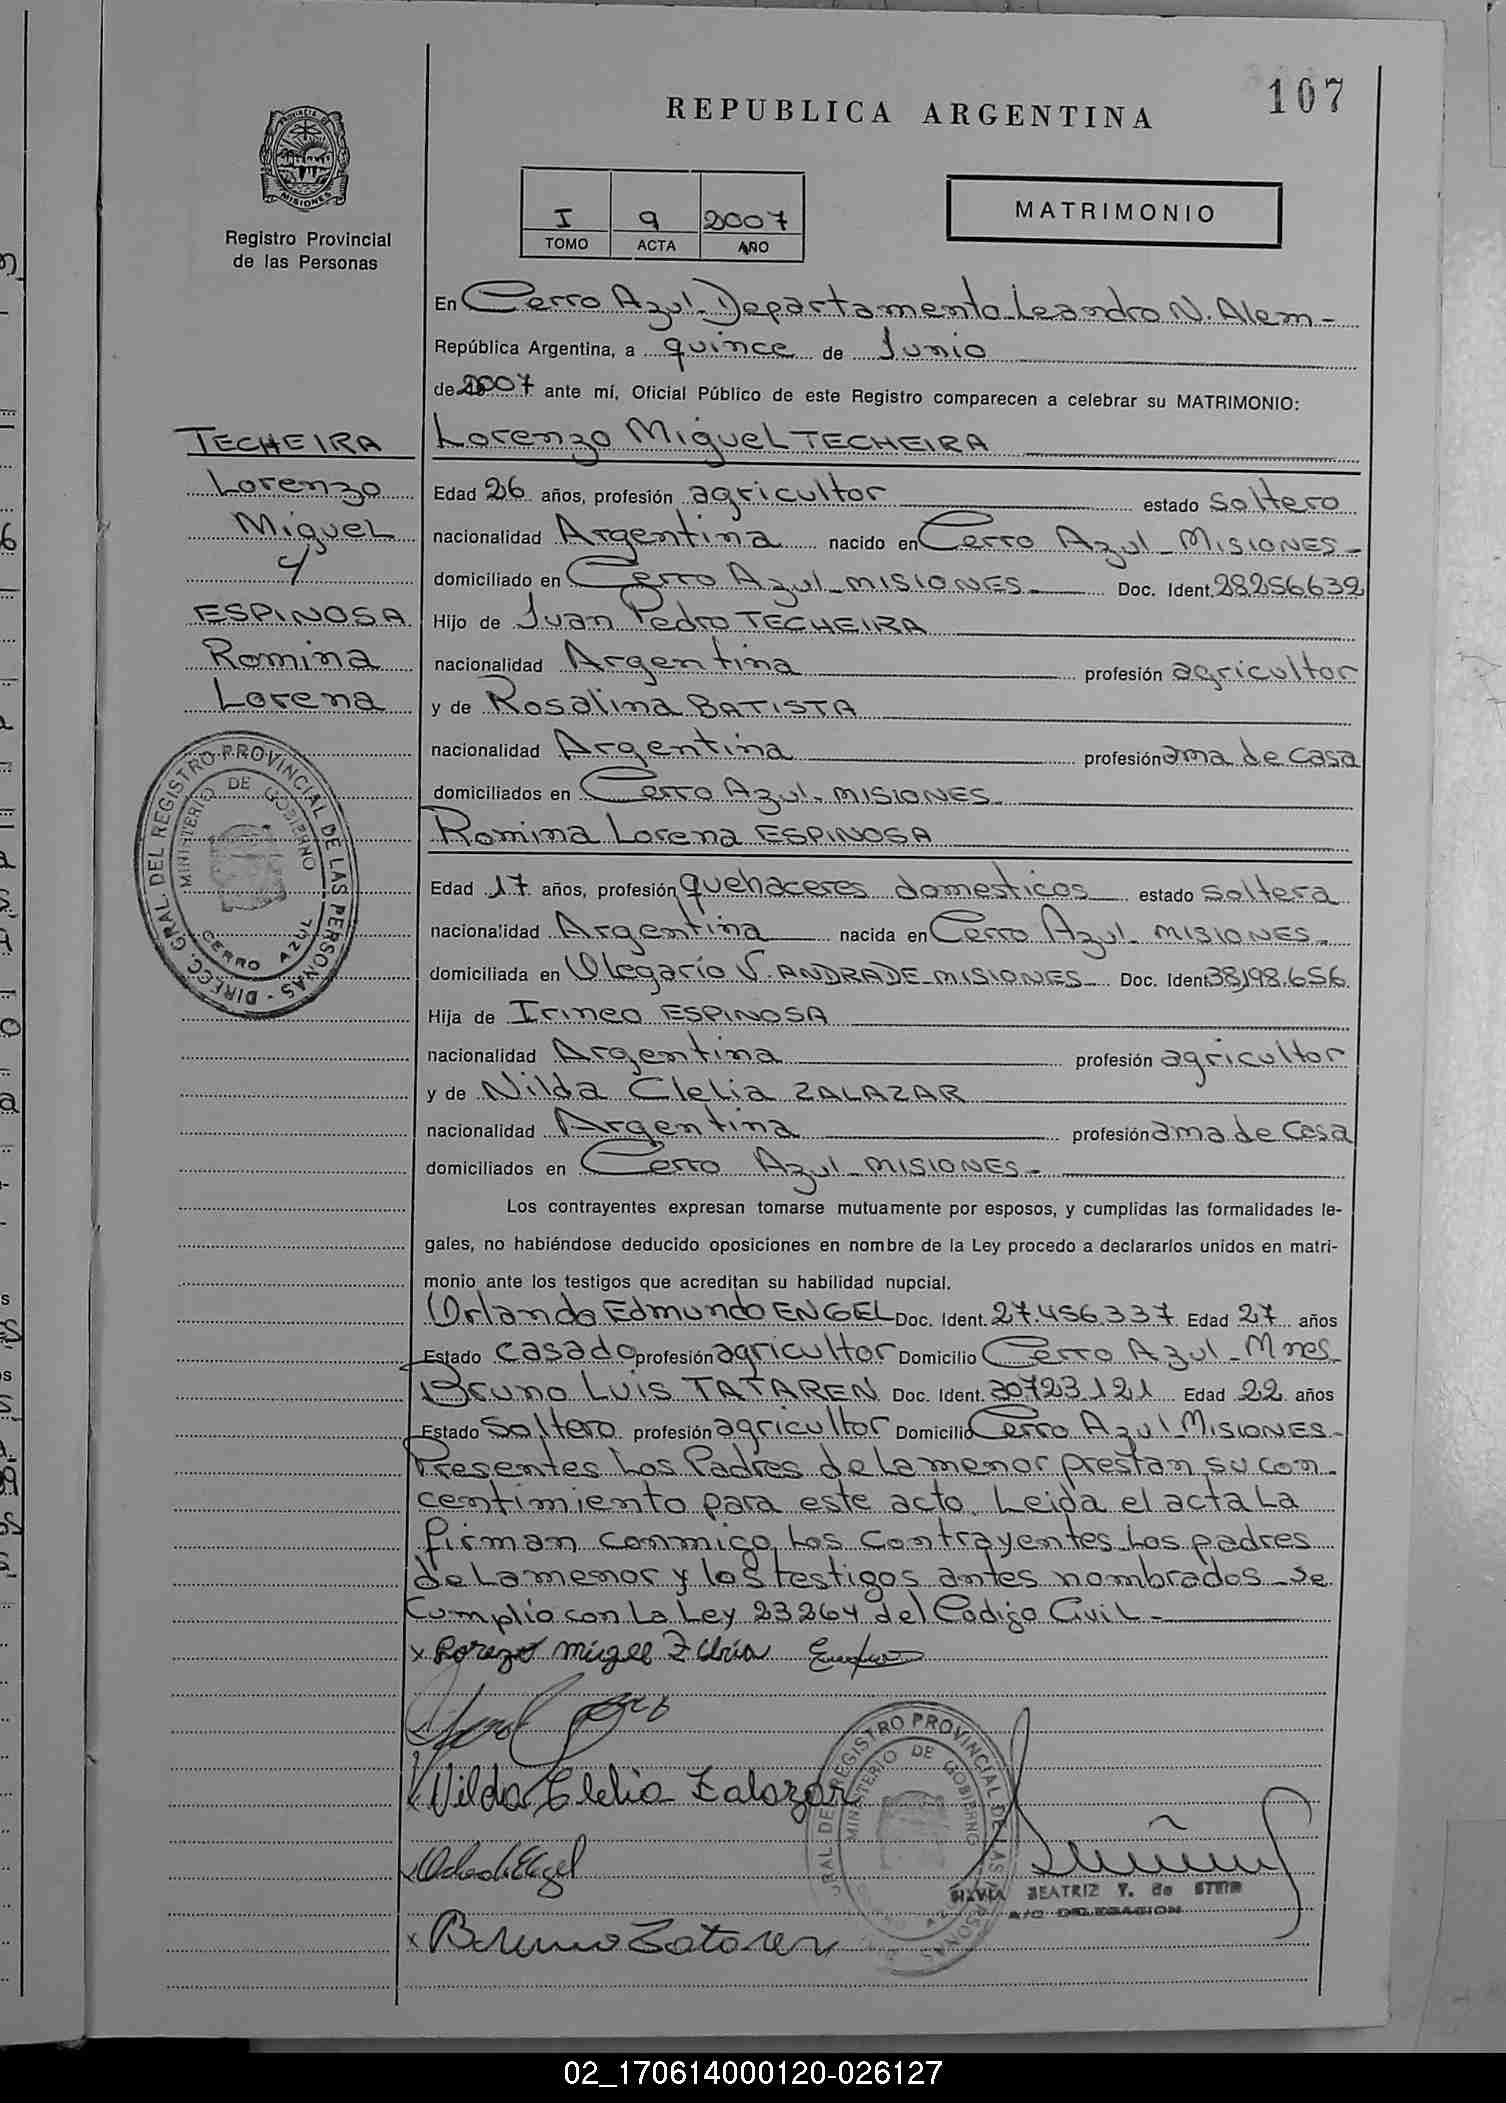 107
REPUBLICA ARGENTINA
PROVINCIA DE
MISIONES
Registro Provincial
de las Personas
I 9 2007
TOMO ACTA AÑO
MATRIMONIO
En Cerro Azul - Departamento Leandro N. Alem -
República Argentina, a quince de Junio
de 2007 ante mí, Oficial Público de este Registro comparecen a celebrar su MATRIMONIO:
TECHEIRA
Lorenzo
Miguel
y
ESPINOSA
Romina
Lorena
Lorenzo Miguel TECHEIRA
Edad 26 años, profesión agricultor estado soltero
nacionalidad Argentina nacido en Cerro Azul - MISIONES -
domiciliado en Cerro Azul - MISIONES - Doc. Ident. 28.256.632
Hijo de Juan Pedro TECHEIRA
nacionalidad Argentina profesión agricultor
y de Rosalina BATISTA
nacionalidad Argentina profesión ama de casa
domiciliados en Cerro Azul - MISIONES -
Romina Lorena ESPINOSA
Edad 17 años, profesión quehaceres domesticos estado soltera
nacionalidad Argentina nacida en Cerro Azul - MISIONES -
domiciliada en Olegario V. ANDRADE - MISIONES - Doc. Ident. 38.198.656
Hija de Irineo ESPINOSA
nacionalidad Argentina profesión agricultor
y de Nilda Clelia ZALAZAR
nacionalidad Argentina profesión ama de casa
domiciliados en Cerro Azul - MISIONES -
DIRECC. GRAL DEL REGISTRO PROVINCIAL DE LAS PERSONAS -
MINISTERIO DE GOBIERNO
CERRO AZUL
Los contrayentes expresan tomarse mutuamente por esposos, y cumplidas las formalidades le-
gales, no habiéndose deducido oposiciones en nombre de la Ley procedo a declararlos unidos en matri-
monio ante los testigos que acreditan su habilidad nupcial.
Orlando Edmundo ENGEL Doc. Ident. 27.456.337 Edad 27 años
Estado casado profesión agricultor Domicilio Cerro Azul - Mnes -
Bruno Luis TATAREN Doc. Ident. 30723121 Edad 22 años
Estado soltero profesión agricultor Domicilio Cerro Azul - MISIONES -
Presentes los Padres de la menor prestan su con-
centimiento para este acto. Leida el acta la
firman conmigo los contrayentes los padres
de la menor y los testigos antes nombrados - Se
Cumplio con la Ley 23264 del Codigo Civil -
x Miguel
x Nilda Clelia Zalazar
GRAL DEL REGISTRO PROVINCIAL DE LAS PERSONAS
MINISTERIO DE GOBIERNO
x Engel
SILVIA BEATRIZ T. de STEIN
A/C DELEGACION
x Bruno Tataren
02_170614000120-026127